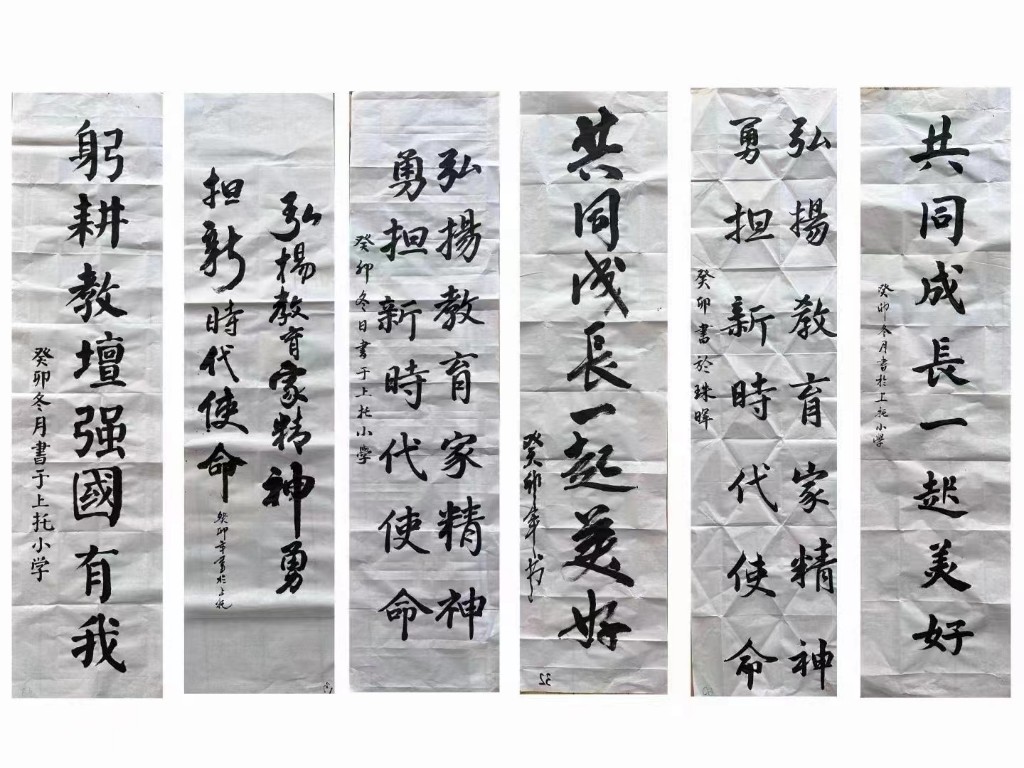 躬耕教壇强國有我
癸卯冬月書于上托小学
弘揚教育家精神勇
担新時代使命
癸卯年書於上托
弘揚教育家精神
勇担新時代使命
癸卯冬日書于上托小學
共同成長一起美好
癸卯年书
32
弘揚教育家精神
勇担新時代使命
癸卯書於珠暉
共同成長一起美好
癸卯冬月書於上托小學